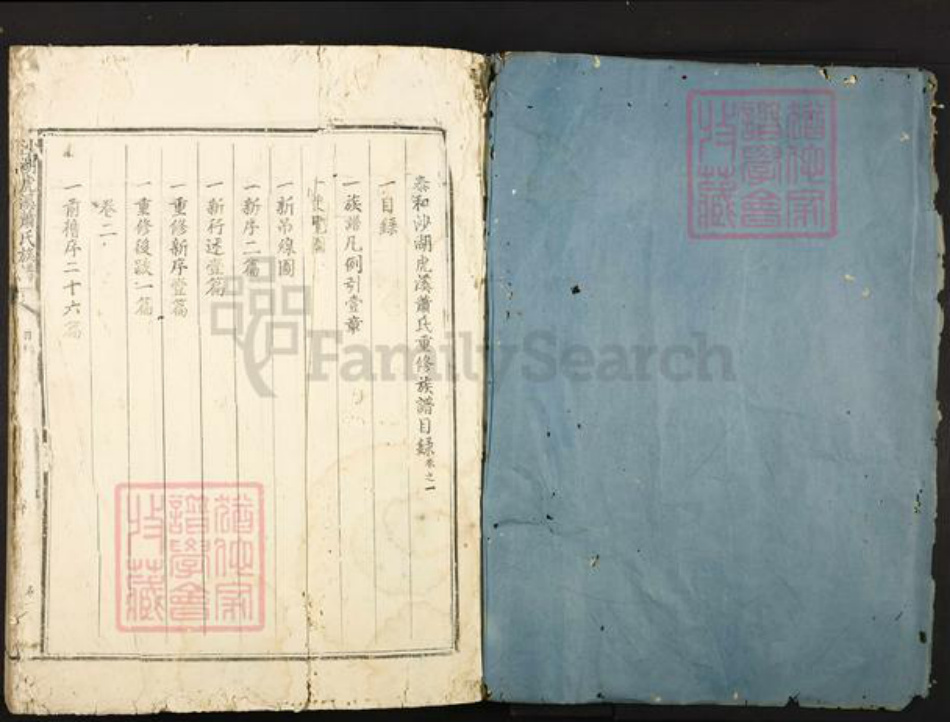 泰和沙湖虎溪蕭氏重修族譜目録卷之一
一目録
一族譜凡例引壹章
一新吊線圖
一新序二篇
一新行述壹篇
一重修新序壹篇
一重修後跋一篇
卷二
一前橹序二十六篇
沙湖虎溪蕭氏族譜
FamilySearch
譜學會
收藏
譜學會
收藏